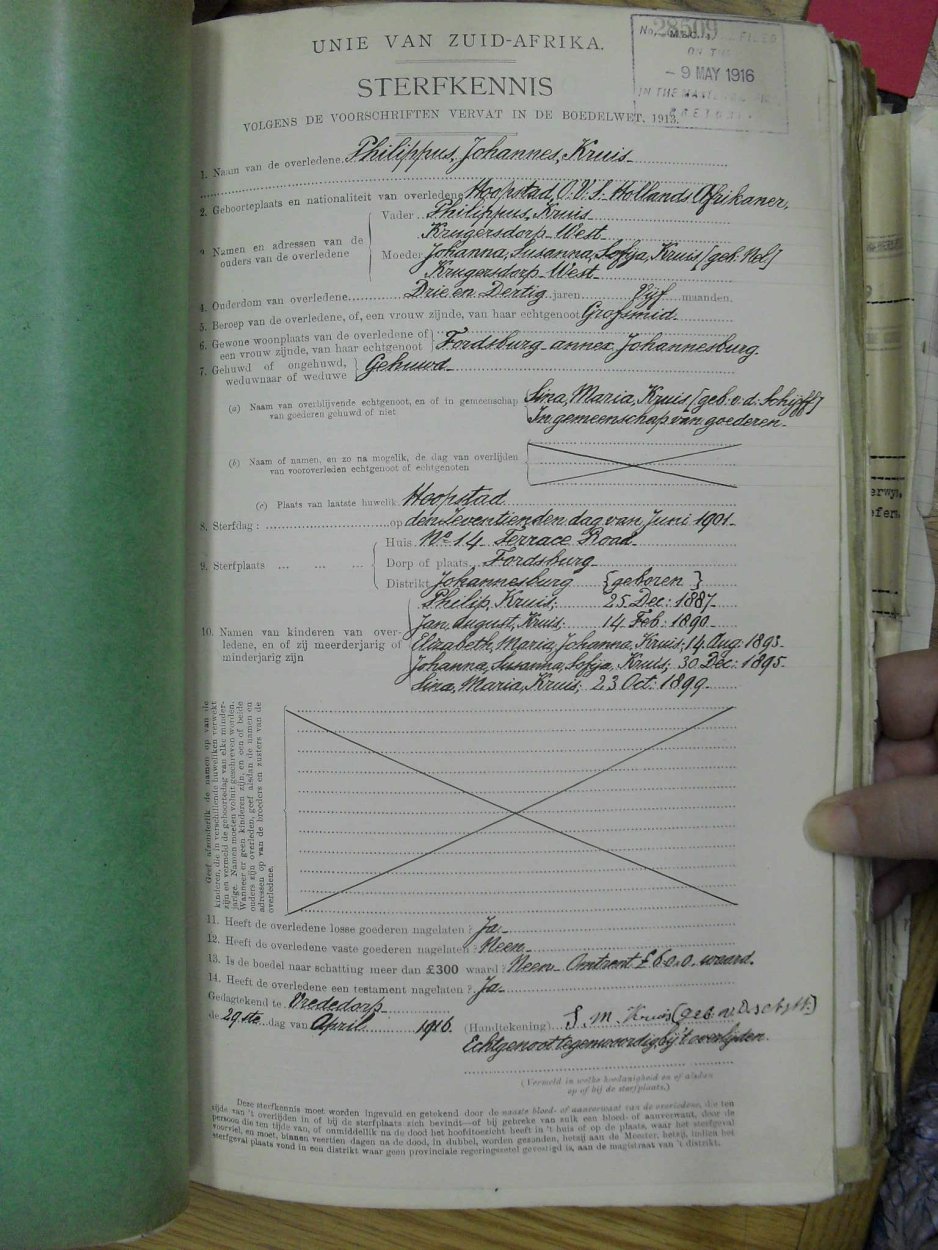 UNIE VAN ZUID-AFRIKA.
No. 28509 FILED
ON THE
- 9 MAY 1916
IN THE MASTER'S
PRETORIA
STERFKENNIS
VOLGENS DE VOORSCHRIFTEN VERVAT IN DE BOEDELWET, 1913.
1. Naam van de overledene Philippus, Johannes, Kruis
2. Geboorteplaats en nationaliteit van overledene Hoopstad, O.V.S. Hollands Afrikaner,
3 Namen en adressen van de ouders van de overledene
Vader Philippus, Kruis
Krugersdorp West
Moeder Johanna, Susanna, Sofja, Kruis [geb: Nel]
Krugersdorp West
4. Ouderdom van overledene Drie en Dertig jaren Vijf maanden.
5. Beroep van de overledene, of, een vrouw zijnde, van haar echtgenoot Grofsmid
6. Gewone woonplaats van de overledene of
een vrouw zijnde, van haar echtgenoot Fordsburg annex Johannesburg.
7. Gehuwd of ongehuwd,
weduwnaar of weduwe Gehuwd
(a) Naam van overblijvende echtgenoot, en of in gemeenschap
van goederen gehuwd of niet
Sina, Maria, Kruis [geb: v.d: Schijff]
In gemeenschap van goederen.
(b) Naam of namen, en zo na mogelik, de dag van overlijden
van vooroverleden echtgenoot of echtgenoten
(c) Plaats van laatste huwelik Hoopstad
8. Sterfdag: op den Zeventienden dag van Juni 1901
9. Sterfplaats ... ... ...
Huis No 14 Terrace Road
Dorp of plaats Fordsburg
Distrikt Johannesburg {geboren}
10. Namen van kinderen van over-
ledene, en of zij meerderjarig of
minderjarig zijn
Philip, Kruis; 25 Dec: 1887
Jan, August, Kruis; 14 Feb: 1890
Elizabeth, Maria, Johanna, Kruis; 14 Aug: 1893
Johanna, Susanna, Sofja, Kruis, 30 Dec: 1895
Sina, Maria, Kruis; 23 Oct: 1899
Geef afzonderlik de namen op van de
kinderen, die in verschillende huweliken verwekt
zijn en vermeld de geboortedag van elke minder-
jarige. Namen moeten voluit geschreven worden.
Wanneer er geen kinderen zijn, en een of beide
ouders zijn overleden, geef alsdan de namen en
adressen op van de broeders en zusters van de
overledene.
11. Heeft de overledene losse goederen nagelaten? Ja
12. Heeft de overledene vaste goederen nagelaten? Neen
13. Is de boedel naar schatting meer dan £300 waard? Neen Omtrent £60.0 waard
14. Heeft de overledene een testament nagelaten? Ja
Gedagtekend te Vrededorp
de 29ste dag van April 1916 (Handtekening) S. M. Kruis
Echtgenoot tegenwoordig bij 't overlijden.
(Vermeld in welke hoedanigheid en of alsdan
op of bij de sterfplaats.)
Deze sterfkennis moet worden ingevuld en getekend door de naaste bloed- of aanverwant van de overledene, die ten
tijde van 't overlijden in of bij de sterfplaats zich bevindt—of bij gebreke van zulk een bloed- of aanverwant, door de
persoon die ten tijde van, of onmiddellik na de dood het hoofdtoezicht heeft in 't huis of op de plaats, waar het sterfgeval
voorviel, en moet, binnen veertien dagen na de dood, in dubbel, worden gezonden, hetzij aan de Meester, hetzij, indien het
sterfgeval plaats vond in een distrikt waar geen provinciale regeringszetel gevestigd is, aan de magistraat van 't distrikt.